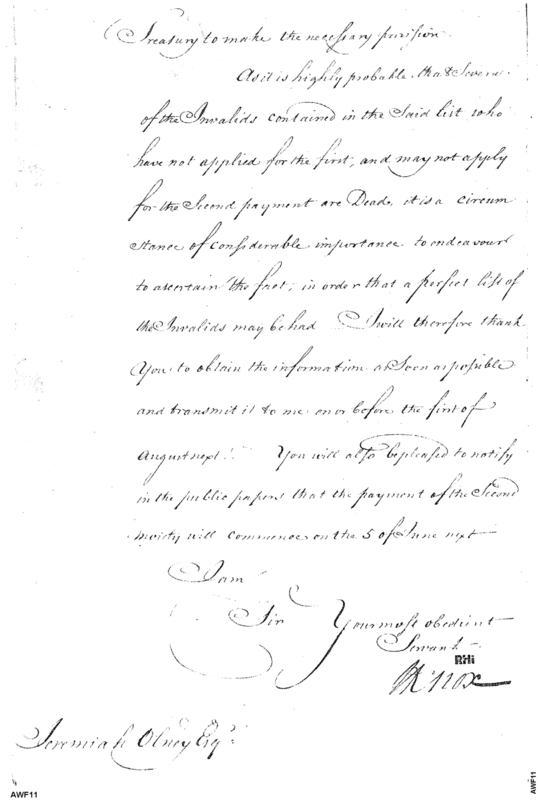 Treasury to make the necessary provision.
As it is highly probable that Severa
of the Invalids contained in the Said list who
have not applied for the first, and may not apply
for the Second payment are Dead, it is a circum
stance of considerable importance to endeavour
to ascertain the fact, in order that a perfect list of
the Invalids may be had I will therefore thank
You to obtain the information as Soon as possible
and transmit it to me on or before the first of
August next. You will also be pleased to notify
in the public papers that the payment of the Second
moiety will commence on the 5 of June next
I am
Sir Your most obedient
Servant
RHi
HKnox
Jeremiah Olney Esqr.
AWF11
AWF11